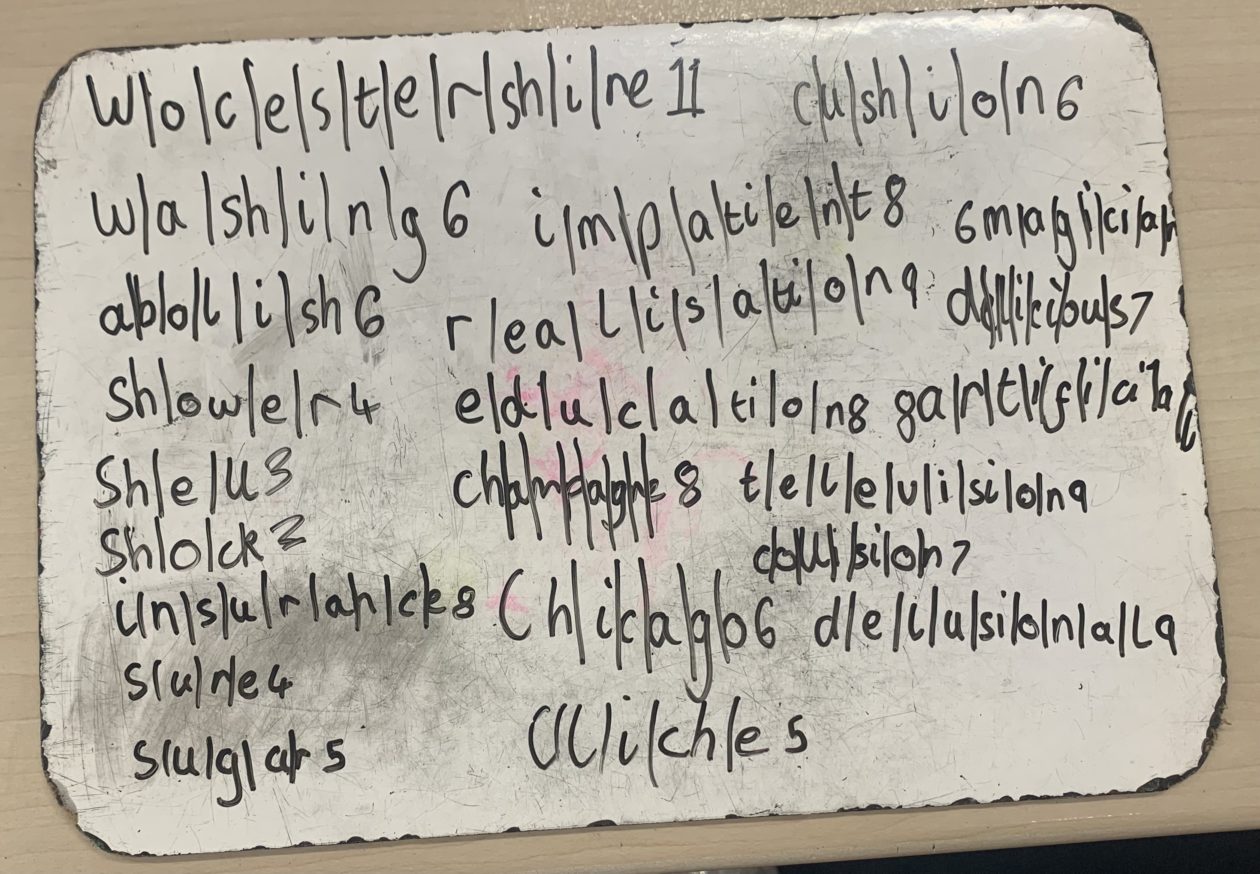 W/o/c/e/s/t/e/r/sh/i/re 11 c/u/sh/i/o/n 6
w/a/sh/i/n/g 6 i/m/p/a/ti/e/n/t 8 6 m/a/g/i/ci/an
a/b/o/l/i/sh 6 r/ea/l/i/s/a/ti/o/n 9 d/e/l/i/ci/ou/s 7
sh/ow/e/r 4 e/d/u/c/a/ti/o/n 8 8 a/r/t/i/f/i/ci/a/l
sh/e/ll 3 ch/a/m/p/a/g/ne 8 t/e/l/e/v/i/si/o/n 9
sh/o/ck 3 c/o/ll/i/si/o/n 7
i/n/s/u/r/an/ck 8 Ch/i/c/a/g/o 6 d/e/l/u/si/o/n/a/l 9
s/u/r/e 4
s/u/g/ar 5 C/l/i/ch/e 5